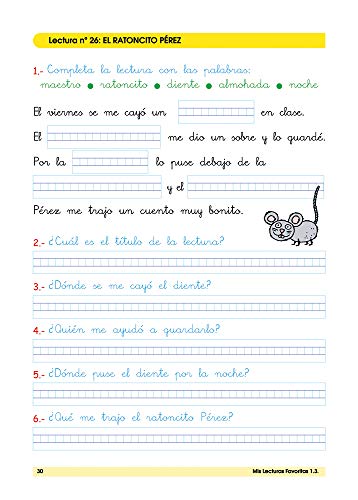 Lectura nº 26: EL RATONCITO PÉREZ
1.- Completa la lectura con las palabras:
maestro ● ratoncito ● diente ● almohada ● noche
El viernes se me cayó un en clase.
El me dio un sobre y lo guardé.
Por la lo puse debajo de la
y el
Pérez me trajo un cuento muy bonito.
2.- ¿Cuál es el título de la lectura?
3.- ¿Dónde se me cayó el diente?
4.- ¿Quién me ayudó a guardarlo?
5.- ¿Dónde puse el diente por la noche?
6.- ¿Qué me trajo el ratoncito Pérez?
30
Mis Lecturas Favoritas 1.3.